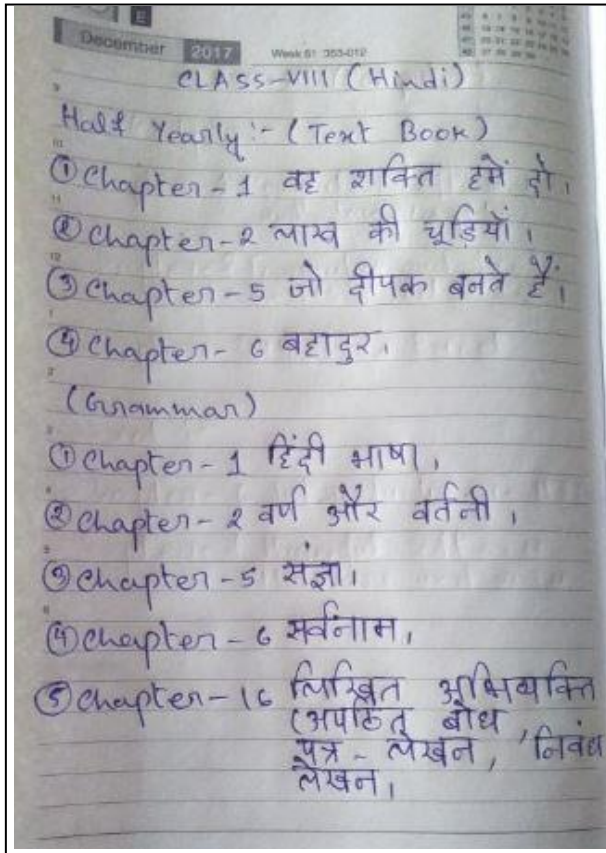 E
December 2017 Week 51 353-012
CLASS-VIII (Hindi)
Half Yearly:- (Text Book)
① Chapter - 1 वह शक्ति हमें दो।
② Chapter - 2 लाख की चूडियाँ।
③ Chapter - 5 जो दीपक बनते हैं।
④ Chapter - 6 बहादुर।
(Grammar)
① Chapter - 1 हिंदी भाषा।
② Chapter - 2 वर्ण और वर्तनी।
③ Chapter - 5 संज्ञा।
④ Chapter - 6 सर्वनाम।
⑤ Chapter - 16 लिखित अभिव्यक्ति
(अपठित बोध,
पत्र - लेखन, निबंध
लेखन।